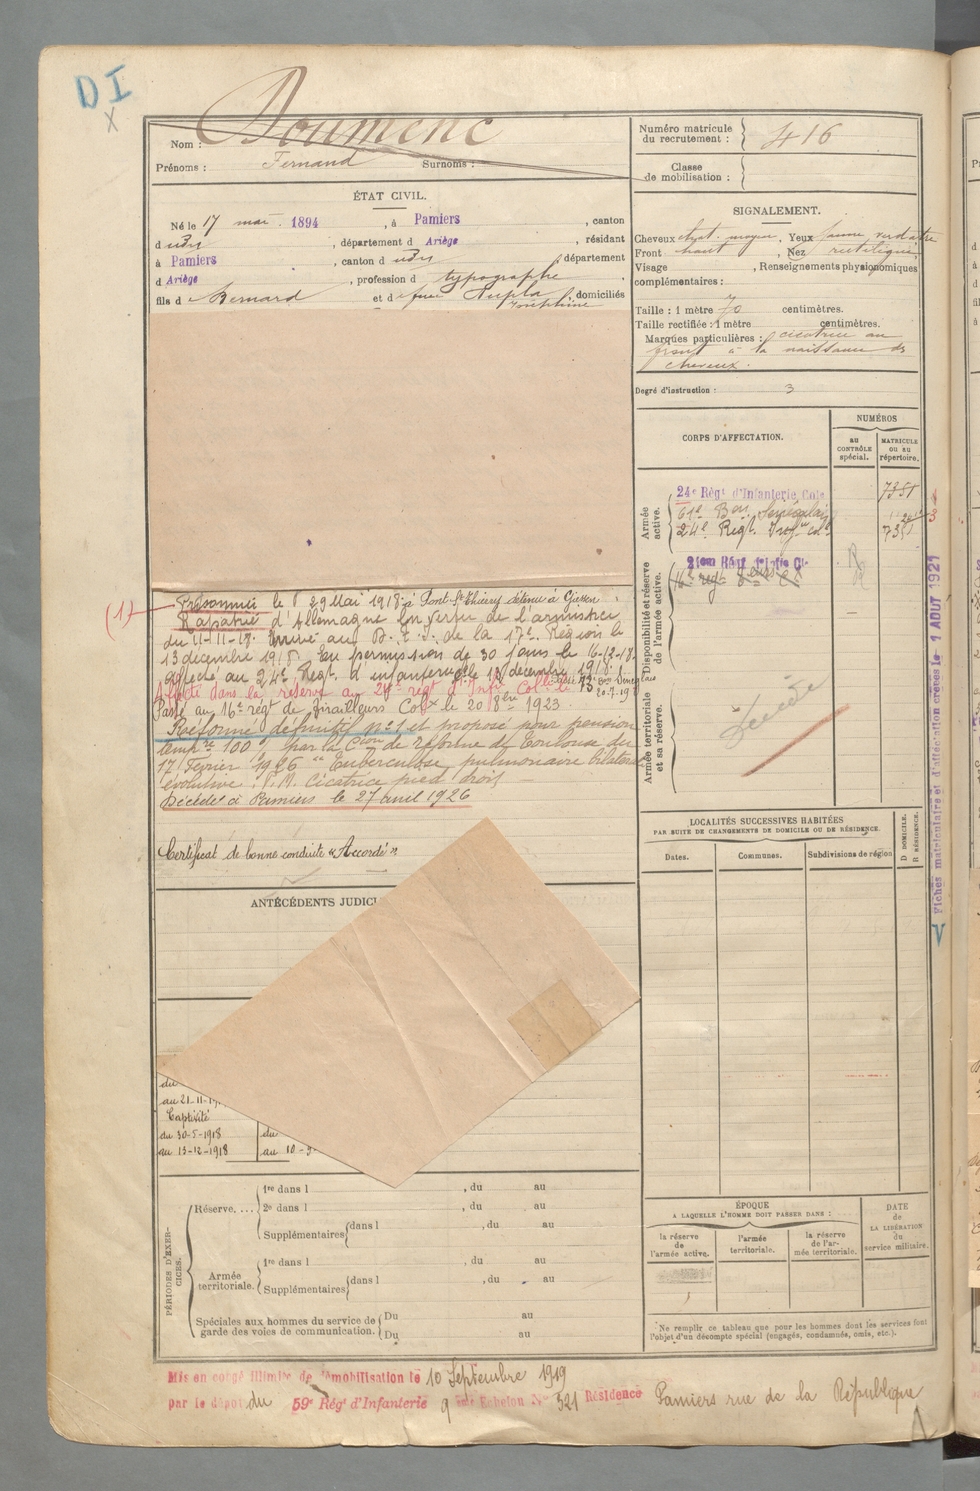 DI
X
Nom : Doumenc
Prénoms : Fernand Surnoms :
Numéro matricule du recrutement : 416
Classe de mobilisation :
ÉTAT CIVIL.
Né le 17 mai 1894, à Pamiers, canton
d udit, département d Ariège, résidant
à Pamiers, canton d udit, département
d Ariège, profession d typographe
fils d Bernard et d feue Dupla Joséphine, domiciliés
SIGNALEMENT.
Cheveux chat. moyen, Yeux jaune verdâtre
Front haut, Nez rectiligne
Visage , Renseignements physionomiques
complémentaires :
Taille : 1 mètre 70 centimètres.
Taille rectifiée : 1 mètre centimètres.
Marques particulières : cicatrice au
front à la naissance des
cheveux.
Degré d'instruction : 3
CORPS D'AFFECTATION.
NUMÉROS
au CONTRÔLE spécial.
MATRICULE OU AU répertoire.
Armée active.
24e Régt d'Infanterie Cole 7351
61e Bon Sénégalais
24e Régt Infie Cole 7351
Disponibilité et réserve de l'armée active.
16e régt
Armée territoriale et sa réserve.
Décédé
Fiches matriculaire et d'affectation créées le 1 AOUT 1921
V
(1) Prisonnier le 29 Mai 1918 à Pont St Thierry détenu à Giessen.
Rapatrié d'Allemagne en vertu de l'armistice
du 11-11-18. Arrivé au D. T. I. de la 17e Région le
13 décembre 1918. En permission de 30 jours le 16-12-18.
Affecté au 24e Régt d'infanterie le 13 décembre 1918.
Affecté dans la réserve au 24e régt d'Infie Colle le
Passé au 16e régt de Tirailleurs Colx le 20 8bre 1923.
Réformé définitif no 1 et proposé pour pension
tempre 100 % par la Cion de réforme de Toulouse du
17 Février 1926 "Tuberculose pulmonaire bilatérale
évolutive. P.M. Cicatrice pied droit —
Décédé à Pamiers le 27 avril 1926
Certificat de bonne conduite "Accordé"
ANTÉCÉDENTS JUDICI
LOCALITÉS SUCCESSIVES HABITÉES
PAR SUITE DE CHANGEMENTS DE DOMICILE OU DE RÉSIDENCE.
Dates.
Communes.
Subdivisions de région
D DOMICILE.
R RÉSIDENCE.
du
au 21-11-19
Captivité
du 30-5-1918 du
au 13-12-1918 au 10-9-
PÉRIODES D'EXERCICES.
Réserve. ... 1re dans l , du au
2e dans l , du au
Supplémentaires dans l , du au
Armée territoriale. 1re dans l , du au
Supplémentaires dans l , du au
Spéciales aux hommes du service de garde des voies de communication. Du au
Du au
ÉPOQUE
A LAQUELLE L'HOMME DOIT PASSER DANS :
la réserve de l'armée active.
l'armée territoriale.
la réserve de l'armée territoriale.
DATE de LA LIBÉRATION du service militaire.
Ne remplir ce tableau que pour les hommes dont les services font
l'objet d'un décompte spécial (engagés, condamnés, omis, etc.).
Mis en congé illimité de démobilisation le 10 Septembre 1919
par le dépôt du 59e Régt d'Infanterie 9 ème Echelon No 321 Résidence Pamiers rue de la République